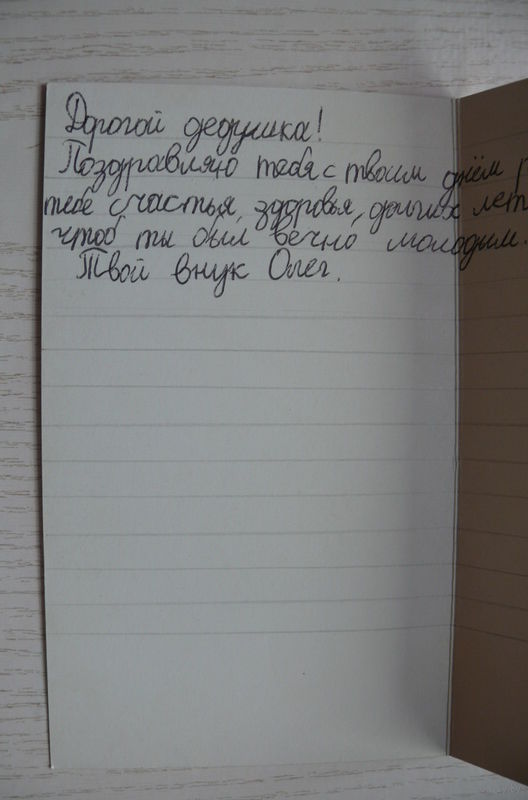 Дорогой дедушка!
Поздравляю тебя с твоим днём
тебе счастья, здоровья, долгих лет
чтоб ты был вечно молодым.
Твой внук Олег.